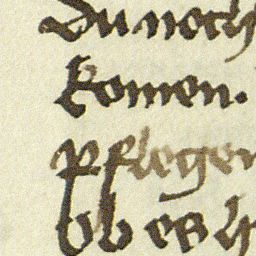 Du noch
komen.
pflegen
ob es h